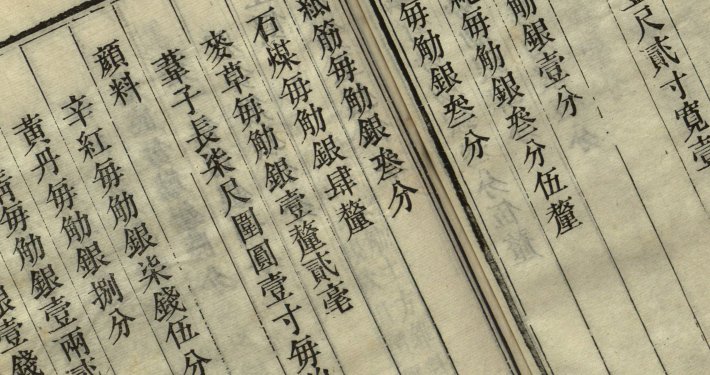 尺貳寸寬壹
觔銀壹分
毎觔銀叄分伍釐
毎觔銀叄分
筋毎觔銀叄分
石煤毎觔銀肆釐
麥草毎觔銀壹釐貳毫
葦子長柒尺圍圓壹寸毎
顔料
辛紅毎觔銀柒錢伍分
黃丹毎觔銀捌分
毎觔銀壹兩貳
銀壹錢